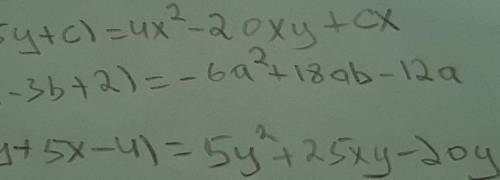 5y+c)=4x²-20xy+cx
-3b+2)=-6a²+18ab-12a
y+5x-4)=5y²+25xy-20y